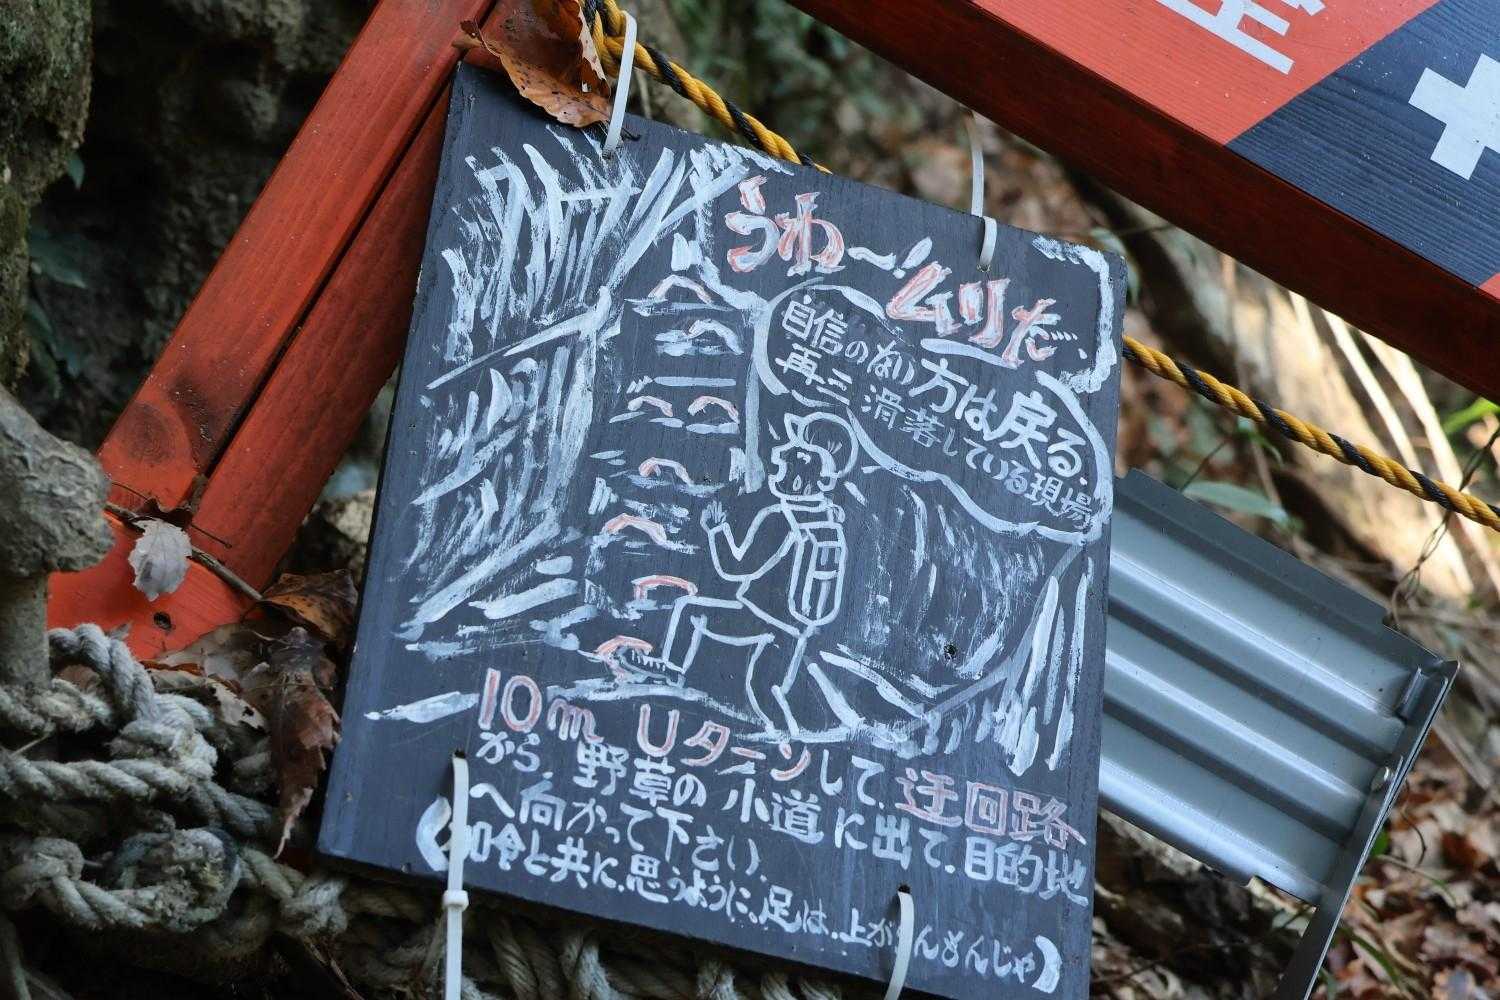 うわ〜!ムリだ、
自信のない方は戻る。
再三滑落している現場
10m Uターンして、迂回路
から、野草の小道に出て、目的地
へ向かって下さい。
と共に、思うように、足は、上がらんもんじゃ)